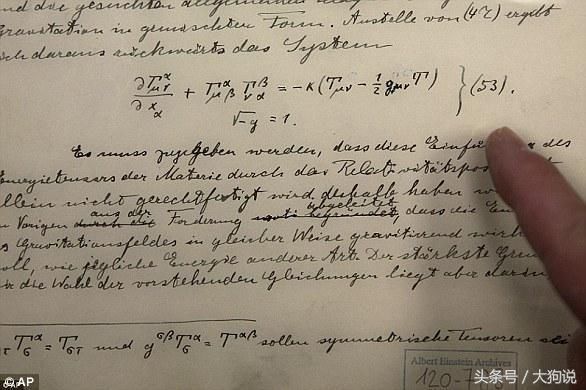 und die gesuchten allgemeinen
Gravitation in gemischter Form. Anstelle von (47) ergibt
sich daraus rückwärts das System
∂Γ^α_μν/∂x_α + Γ^α_μβ Γ^β_να = −κ(T_μν − ½ g_μν T) } (53).
√−g = 1.
Es muss zugegeben werden, dass diese Einführung des
Energietensors der Materie durch das Relativitätspostulat
allein nicht gerechtfertigt wird; deshalb haben wir
aus der abgeleitet
Vorigen durch die Forderung dass die
Gravitationsfeldes in gleicher Weise gravitierend wirken
soll, wie jegliche Energie anderer Art. Der stärkste
für die Wahl der vorstehenden Gleichungen liegt aber darin
T^α_σ = T_στ und g^σβ T^α_σ = T^αβ sollen symmetrische Tensoren
Albert Einstein Archives
120-7
©AP
©AP
头条号 / 大狗说